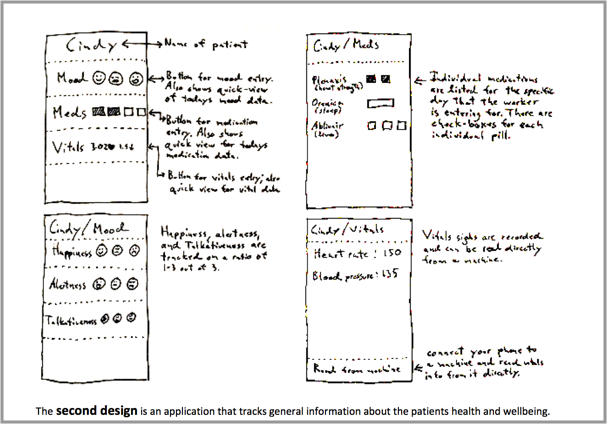 Cindy
Name of patient
Mood
Button for mood entry.
Also shows quick-view
of todays mood data.
Meds
Button for medication
entry. Also shows
quick view for todays
medication data.
Vitals
Button for vitals entry; also
quick view for vital data
Cindy/Meds
(heart strength)
(sleep)
(liver)
Individual medications
are listed for the specific
day that the worker
is entering for. There are
check-boxes for each
individual pill.
Cindy/Mood
Happiness
Alertness
Talkativeness
Happiness, alertness,
and Talkativeness are
tracked on a ratio of
1-3 out of 3.
Cindy/Vitals
Heart rate: 150
Blood pressure: 135
Read from machine
Vitals sighs are recorded
and can be read directly
from a machine.
connect your phone to
a machine and read vitals
info from it directly.
The second design is an application that tracks general information about the patients health and wellbeing.